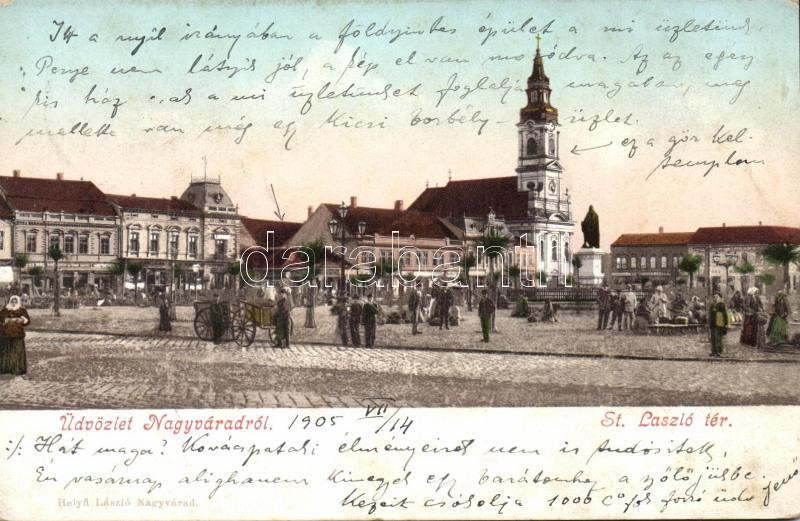 Itt a nyíl irányában a földszintes épület a mi üzletünk
Persze nem látszik jól, a kép el van mosódva. Az az egész
kis ház csak a mi üzletünket foglalja magában, meg
mellette van még egy kicsi borbély-üzlet.
ez a gör. kel.
templom
darabanth
Üdvözlet Nagyváradról. 1905 VII/14 St. Laszló tér.
:/: Hát maga? Kovácspataki élményeiről nem is tudósítok,
Én vasárnap alighanem kimegyek egy barátomhoz a szőlőjükbe.
Kezeit csókolja 1000 C° forró üdv
Helyfi László Nagyvárad.